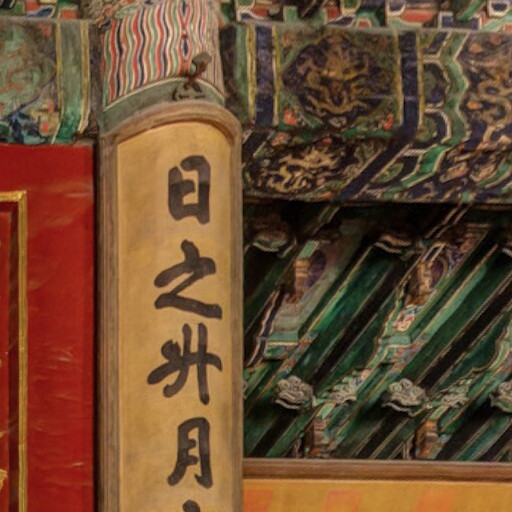 日之升月